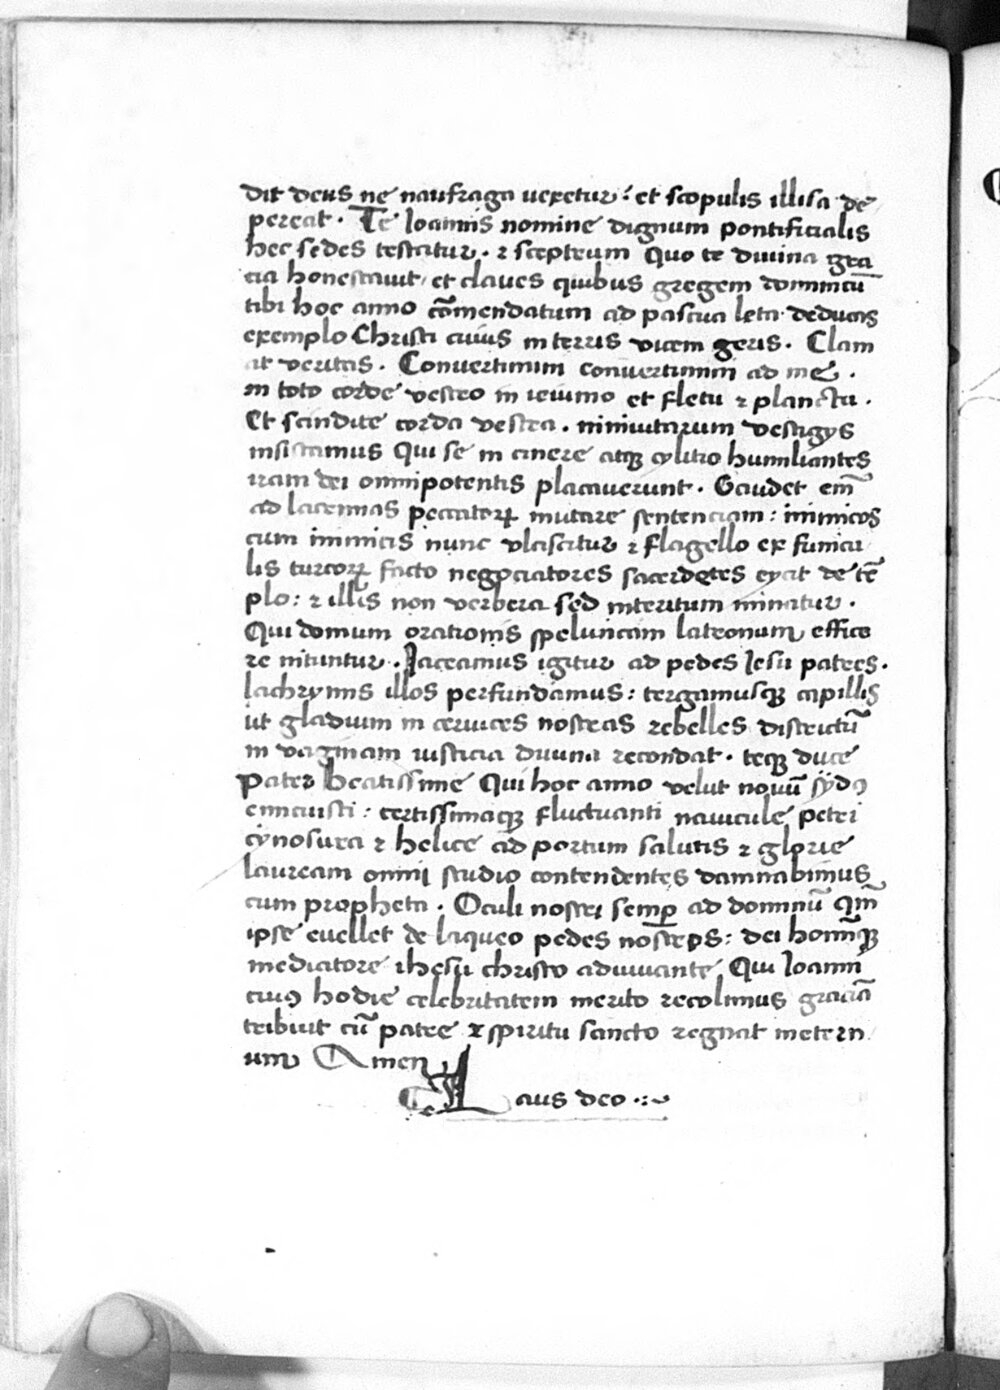 dit deus ne naufraga vexetur: et scopulis illisa de
pereat. Te Ioannis nomine dignum pontificialis
hec sedes testatur. & sceptrum Quo te divina gra
cia honestavit, et claves quibus gregem dominicū
tibi hoc anno cōmendatum ad pascua leta deducas
exemplo Christi cuius in terris vicem geris. Clam
at veritas. Convertimini convertimini ad me.
in toto corde vestro in ieiunio et fletu & planctu.
Et scindite corda vestra. ninivitarum vestigys
insistamus Qui se in cinere atqꝫ cylitio humiliantes
iram dei omnipotentis placaverunt. Gaudet em̄
ad lacrimas peccatorꝝ mutare sentenciam: inimicos
cum inimicis nunc vlciscitur & flagello ex funicu
lis turcorꝝ facto negociatores sacerdotes eycit de tē
plo: & illis non verbera sed interitum minatur.
Qui domum orationis speluncam latronum effice
re nituntur. Iaceamus igitur ad pedes Iesu patres.
lachrymis illos perfundamus: tergamusqꝫ capillis
ut gladium in cervices nostras rebelles districtū
in vaginam iusticia divina recondat. teqꝫ duce
Pater beatissime Qui hoc anno velut novū sydꝰ
emicuisti: certissimaqꝫ fluctuanti navicule petri
cynosura & helice ad portum salutis & glorie
lauream omni studio contendentes damnabimus
cum propheta. Oculi nostri semꝑ ad dominū qm̄
ipse evellet de laqueo pedes nostros: dei hominūqꝫ
mediatore ihesu christo adiuvante Qui Ioanni
cuiꝰ hodie celebritatem merito recolimus graciā
tribuit cū patre & spiritu sancto regnat in etern
um Amen
Laus deo